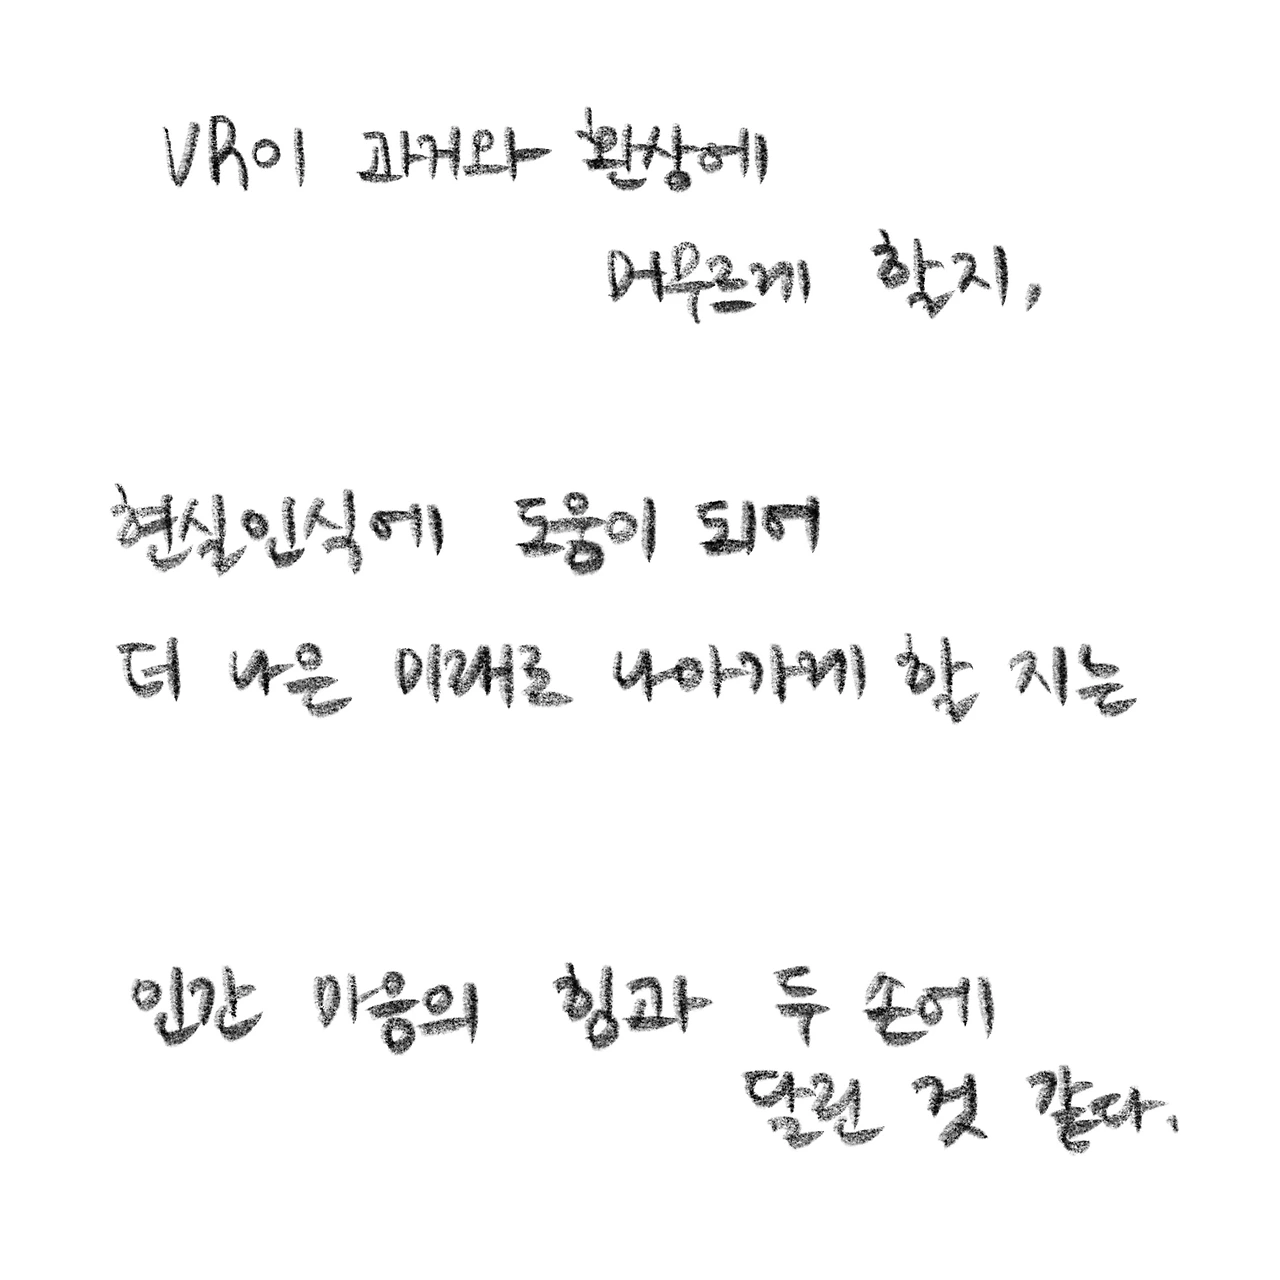 VR이 과거와 환상에
머무르게 할지,
현실인식에 도움이 되어
더 나은 미래로 나아가게 할 지는
인간 마음의 힘과 두 손에
달린 것 같다.